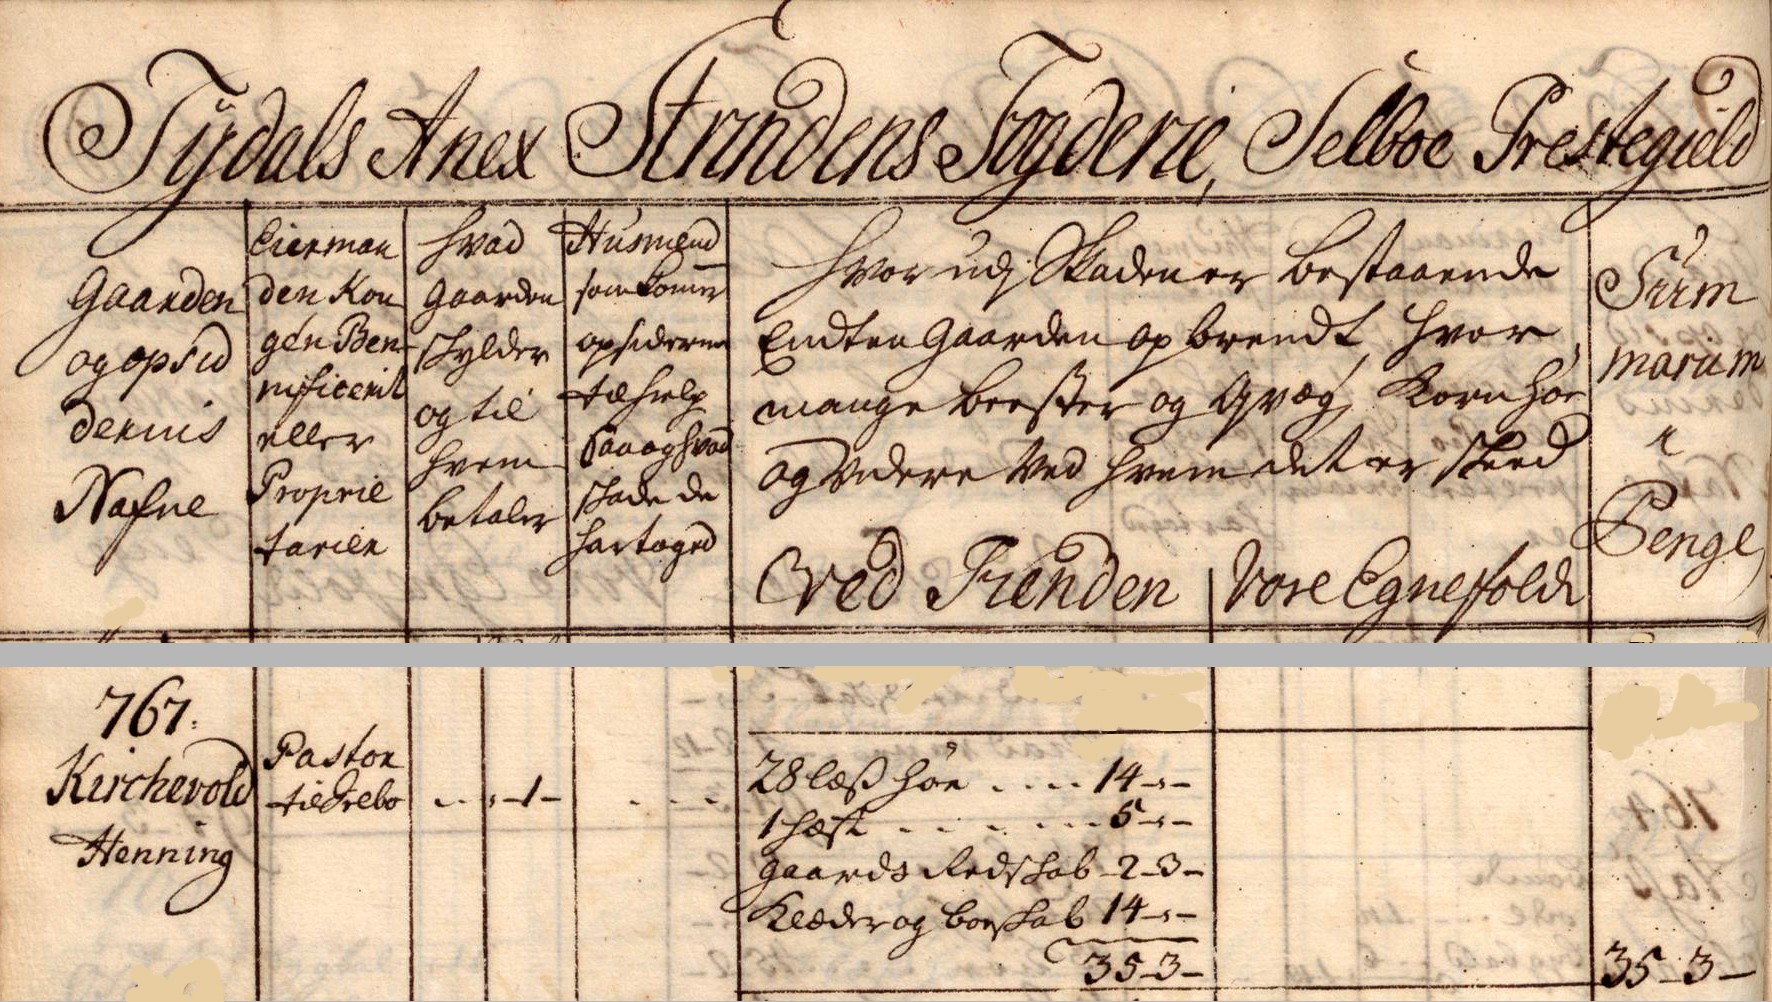 Tÿdals Anex Strindens Fogderie, Selboe Prestegield
Gaarden
og opsid
dernis
Nafne
Eierman
den Kon
gen Ben
nificeril
eller
Proprie
tarien
Hvad
Gaarden
skylder
og til
hvem
betaler
Husmend
som komer
opsiderne
til hielp
saa og hvad
skade de
har taged
Hvor udj Skaden er bestaaende
Endten Gaarden opbrendt, hvor
mange beester og qvæg, Korn höe
og videre ved hvem det er skeed
Ved Fienden
Vore Egne folck
Sum
marum
Penge
767.
Kirchevold
Henning
Pastor
til
1
28 læs höe 14
1 hæst 5
gaards Redskab 2 3
Klæder og boeskab 14
35 3
35 3